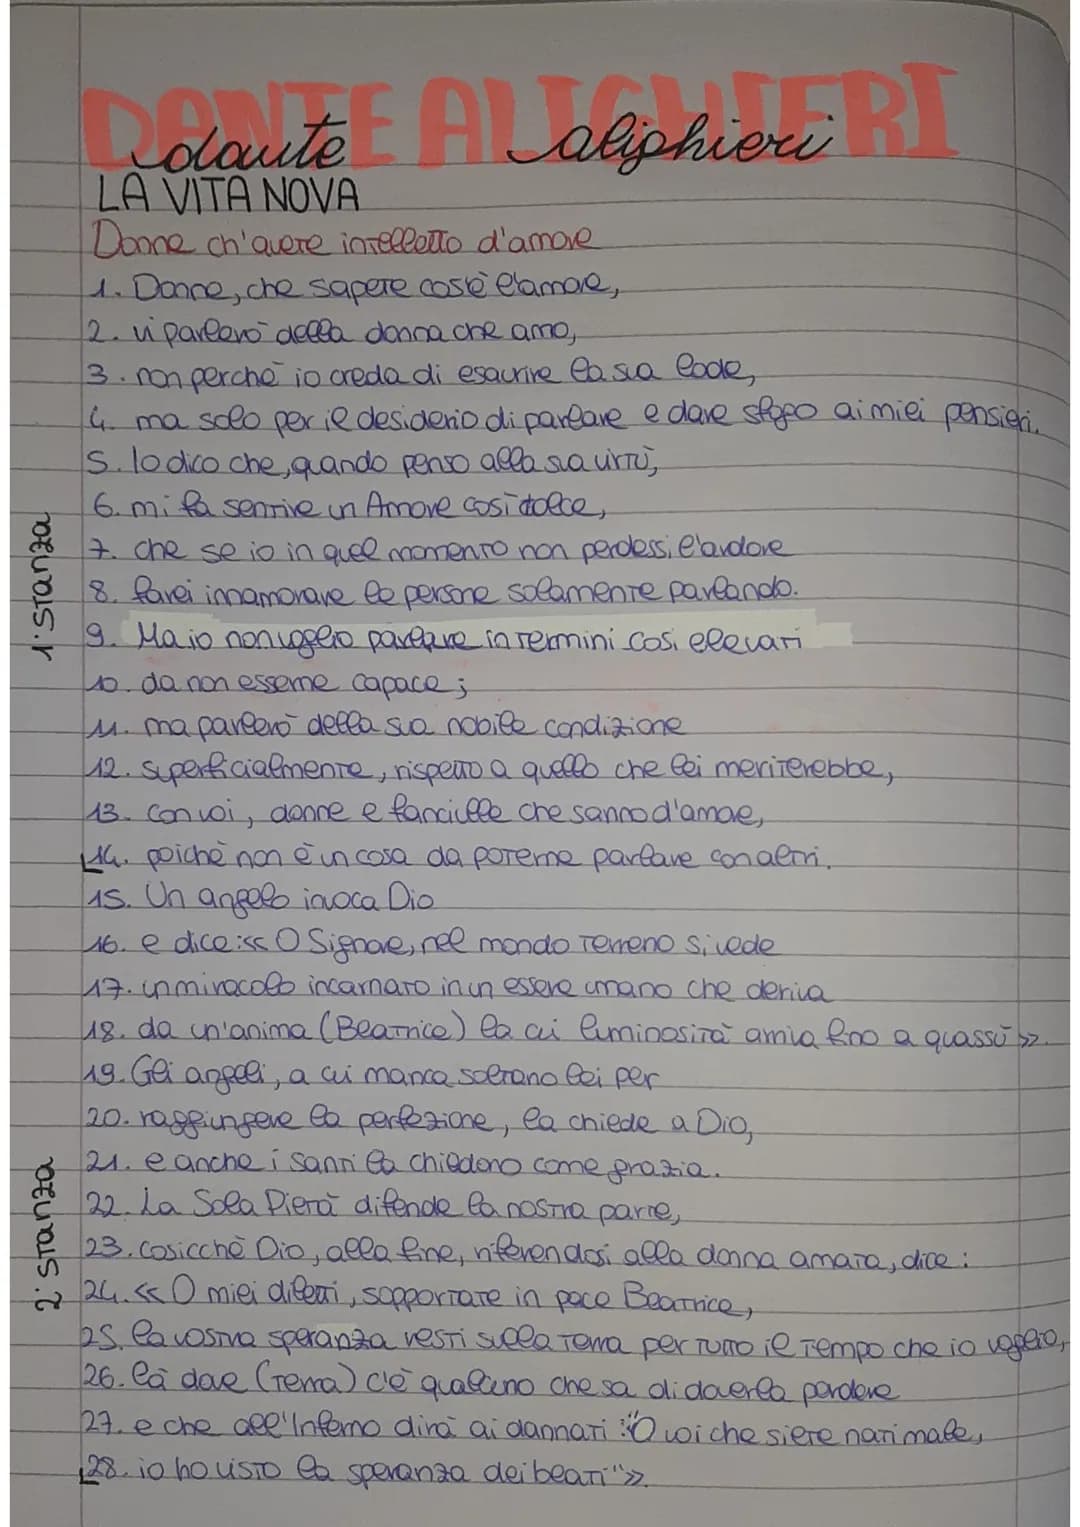 DANTE ALIGHIERI
dante alighieri
LA VITA NOVA
Donne ch'avete intelletto d'amore
1. Donne, che sapete cos'è l'amore,
2. vi parlerò della donna che amo,
3. non perché io creda di esaurire la sua lode,
4. ma solo per il desiderio di parlare e dare sfogo ai miei pensieri.
5. Io dico che, quando penso alla sua virtù,
6. mi fa sentire un Amore così dolce,
7. che se io in quel momento non perdessi l'ardore
8. farei innamorare le persone solamente parlando.
9. Ma io non voglio parlare in termini così elevati
10. da non esserne capace;
11. ma parlerò della sua nobile condizione
12. superficialmente, rispetto a quello che lei meriterebbe,
13. con voi, donne e fanciulle che sanno d'amore,
14. poiché non è un cosa da poterne parlare con altri.
1ª stanza
15. Un angelo invoca Dio
16. e dice: << O Signore, nel mondo terreno si vede
17. un miracolo incarnato in un essere umano che deriva
18. da un'anima (Beatrice) la cui luminosità arriva fino a quassù >>.
19. Gli angeli, a cui manca soltano lei per
20. raggiungere la perfezione, la chiede a Dio,
21. e anche i santi la chiedono come grazia.
22. La Sola Pietà difende la nostra parte,
23. cosicché Dio, alla fine, riferendosi alla donna amata, dice:
24. << O miei diletti, sopportate in pace Beatrice,
25. la vostra speranza resti sulla terra per tutto il tempo che io voglio,
26. là dove (Terra) c'è qualcuno che sa di doverla perdere
27. e che all'Inferno dirà ai dannati: "O voi che siete nati male,
28. io ho visto la speranza dei beati">>.
2ª stanza